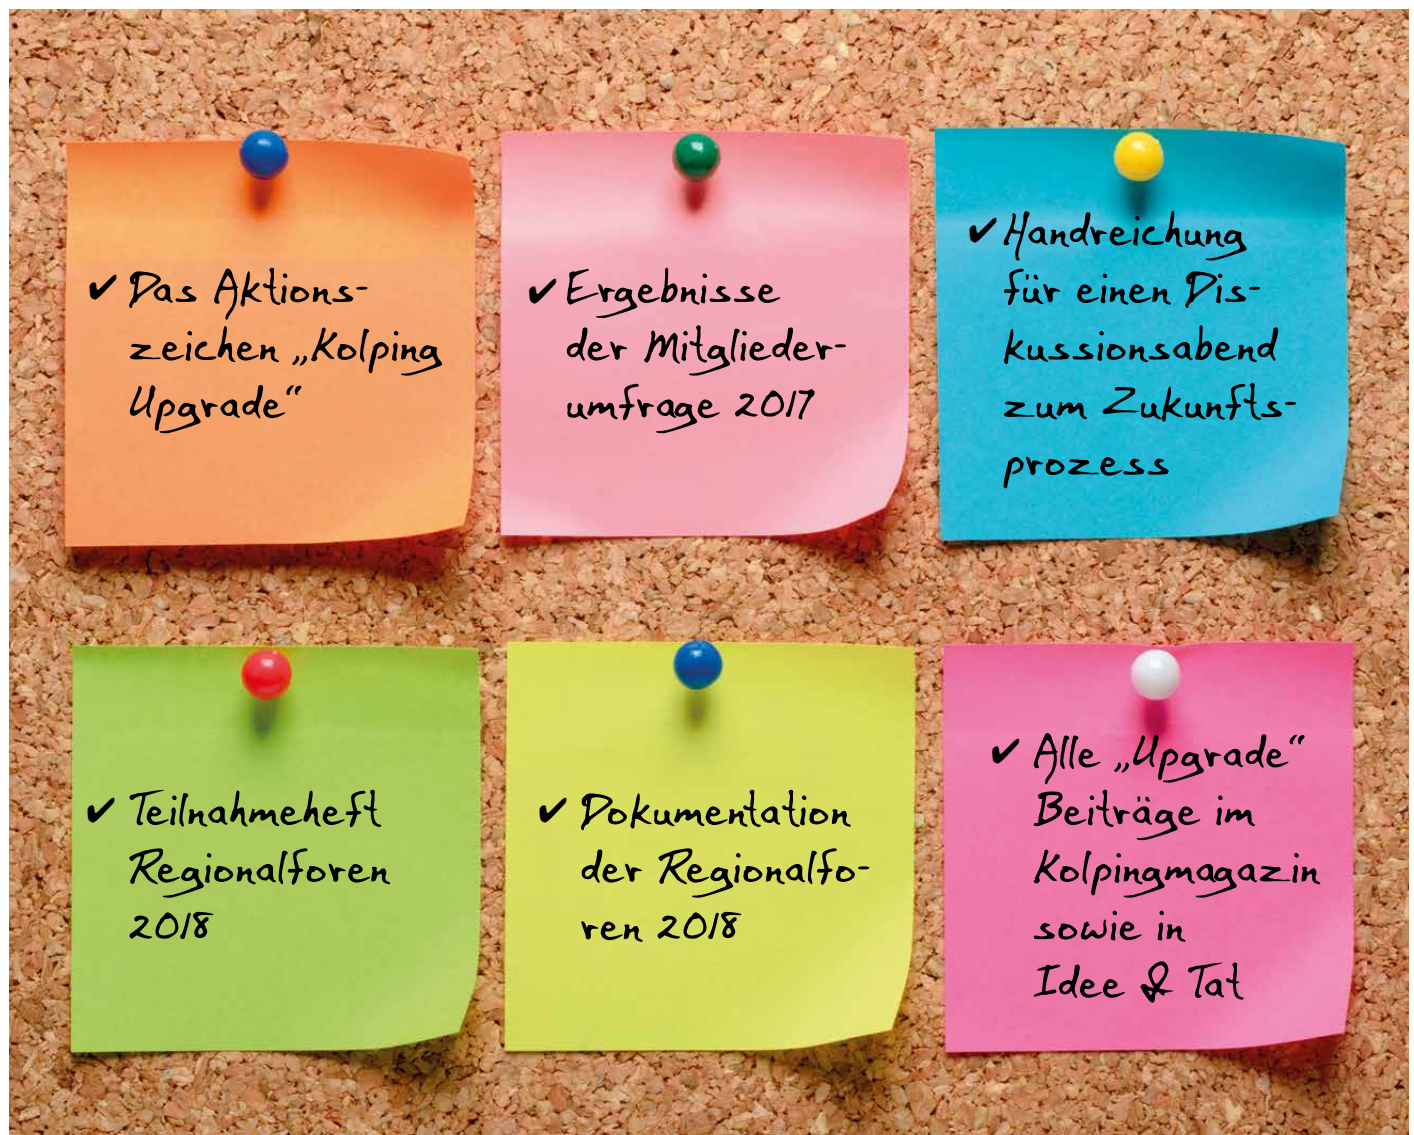 ✔ Das Aktions-
zeichen „Kolping
Upgrade“
✔ Ergebnisse
der Mitglieder-
umfrage 2017
✔ Handreichung
für einen Dis-
kussionsabend
zum Zukunfts-
prozess
✔ Teilnahmeheft
Regionalforen
2018
✔ Dokumentation
der Regionalfo-
ren 2018
✔ Alle „Upgrade“
Beiträge im
Kolpingmagazin
sowie in
Idee & Tat